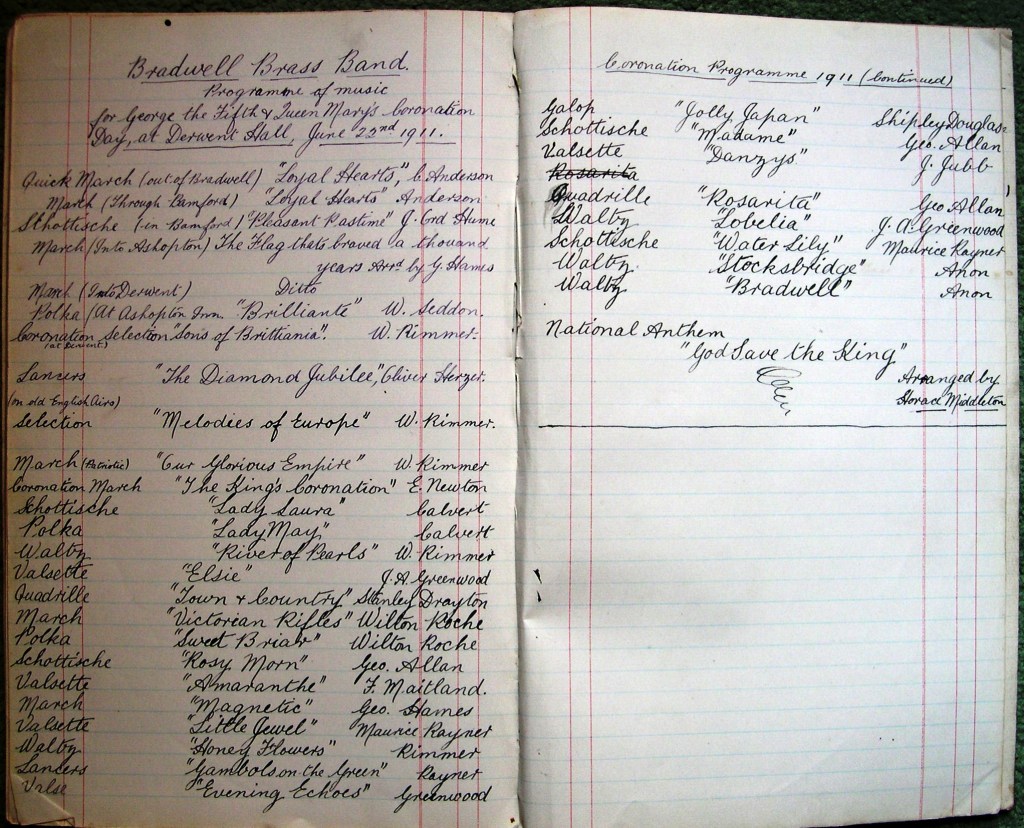 Bradwell Brass Band.
Programme of music
for George the Fifth & Queen Mary's Coronation
Day, at Derwent Hall, June 22nd 1911.
Quick March (out of Bradwell) "Loyal Hearts", C. Anderson
March (Through Bamford) "Loyal Hearts" Anderson
Schottische (in Bamford) "Pleasant Pastime" J. Ord Hume
March (Into Ashopton) The Flag thets braved a thousand
years Arrd by G. Hames
March (Into Derwent) Ditto
Polka (At Ashopton Inn "Brilliante" W. Seddon.
Coronation Selection "Sons of Brittiania". W. Rimmer.
(at Derwent)
Lancers "The Diamond Jubilee", Oliver Herzer.
(on old English Airs)
Selection "Melodies of Europe" W. Rimmer.
March (Patriotic) "Our Glorious Empire" W. Rimmer
Coronation March "The King's Coronation" E. Newton
Schottische "Lady Laura" Calvert
Polka "Lady May" Calvert
Waltz "River of Pearls" W. Rimmer
Valsette "Elsie" J. A. Greenwood
Quadrille "Town & Country" Stanley Drayton
March "Victorian Rifles" Wilton Roche
Polka "Sweet Briar" Wilton Roche
Schottische "Rosy Morn" Geo. Allan
Valsette "Amaranthe" F. Maitland.
March "Magnetic" Geo. Hames
Valsette "Little Jewel" Maurice Rayner
Waltz "Honey Flowers" Rimmer
Lancers "Gambols on the Green" Rayner
Valse "Evening Echoes" Greenwood
Coronation Programme 1911 (Continued)
Galop "Jolly Japan" Shipley Douglas
Schottische "Madame" Geo. Allan
Valsette "Danzys" J. Jubb
Rosarita
Quadrille "Rosarita" Geo Allan
Waltz "Lobelia" J. A. Greenwood
Schottische "Water Lily" Maurice Rayner
Waltz "Stocksbridge" Anon
Waltz "Bradwell" Anon
National Anthem
"God Save the King"
Arranged by
Horace Middleton